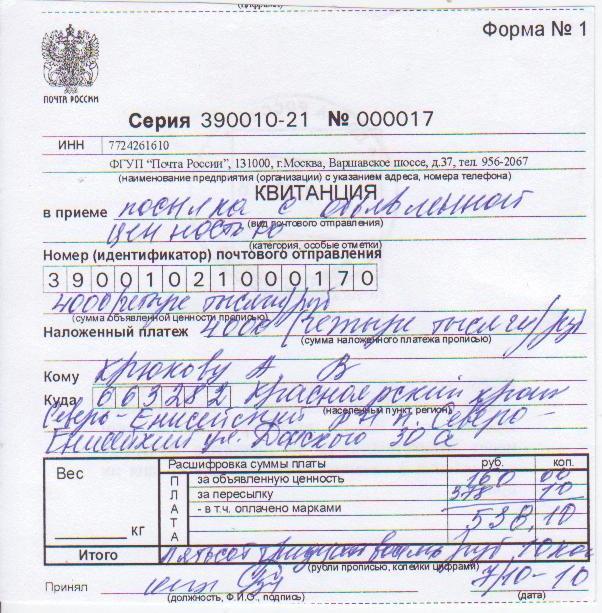 Форма № 1
ПОЧТА РОССИИ
Серия 390010-21 № 000017
ИНН 7724261610
ФГУП "Почта России", 131000, г.Москва, Варшавское шоссе, д.37, тел. 956-2067
(наименование предприятия (организации) с указанием адреса, номера телефона)
КВИТАНЦИЯ
в приеме посылка с объявленной
(вид почтового отправления)
ценностью
(категория, особые отметки)
Номер (идентификатор) почтового отправления
39001021000170
4000 (четыре тысячи) руб
(сумма объявленной ценности прописью)
Наложенный платеж 4000 (четыре тысячи) руб
(сумма наложенного платежа прописью)
Кому Крюкову А. В
Куда 663282 Красноярский край
(населенный пункт, регион)
Северо-Енисейский р-н п. Северо-
Енисейский ул. Донского 30 а
Вес Расшифровка суммы платы руб. коп.
ПЛАТА за объявленную ценность 160 00
за пересылку 378 10
- в т.ч. оплачено марками 538,10
КГ
Итого Пятьсот тридцать восемь руб 10 коп
(рубли прописью, копейки цифрами)
Принял 7/10-10
(должность, Ф.И.О., подпись) (дата)